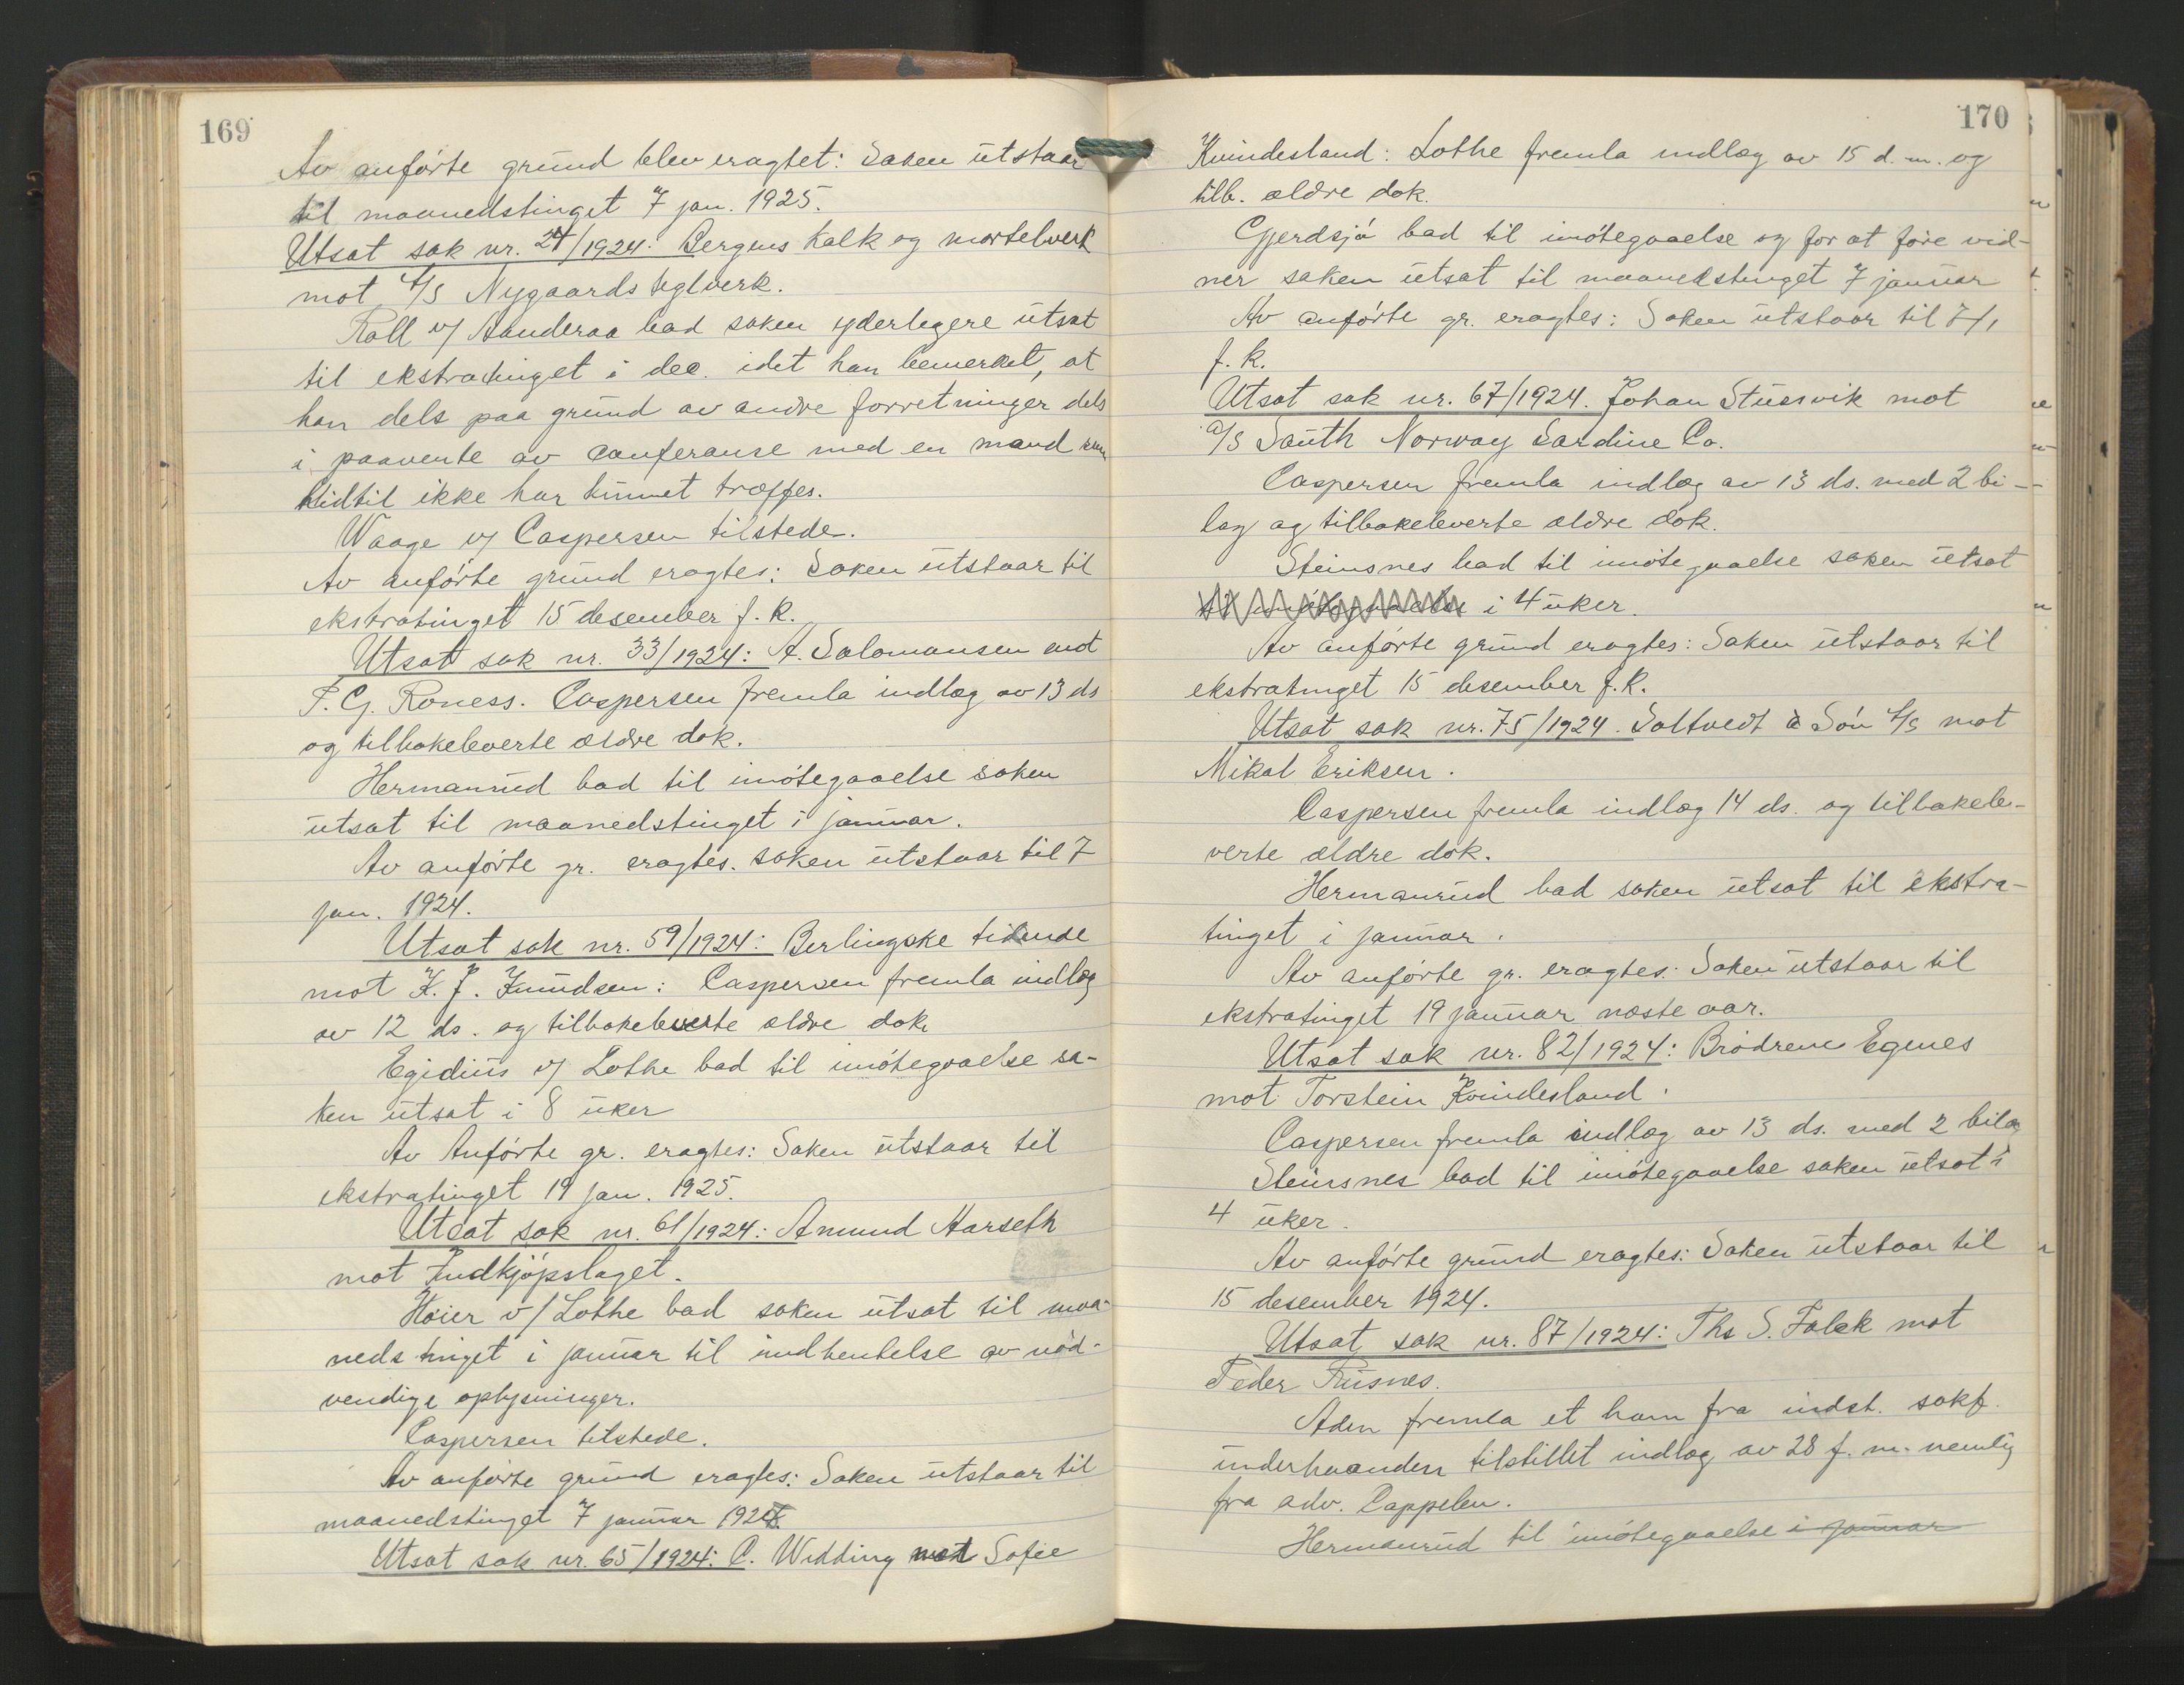 169
Av anførte grund blev eragtet: Saken utstaar
til maanedstinget 7 jan. 1925.
Utsat sak nr. 24/1924: Bergens kalk og mørtelverk
mot A/S Nygaards teglverk.
Roll v/ Aanderaa bad saken yderlegere utsat
til ekstratinget i dec. idet han bemerket, at
han dels paa grund av andre forretninger dels
i paavente av conferanse med en mand som
hidtil ikke har kunnet træffes.
Waage v/ Caspersen tilstede.
Av anførte grund eragtes: Saken utstaar til
ekstratinget 15 desember f. k.
Utsat sak nr. 33/1924: A. Salomonsen mot
P. G. Roness. Caspersen fremla indlæg av 13 ds
og tilbakeleverte ældre dok.
Hermanrud bad til imøtegaaelse saken
utsat til maanedstinget i januar.
Av anførte gr. eragtes. saken utstaar til 7
jan. 1924.
Utsat sak nr. 59/1924: Berlingske tidende
mot K. J. Knudsen: Caspersen fremla indlæg
av 12 ds. og tilbakeleverte ældre dok.
Egidius v/ Lothe bad til imøtegaaelse sa-
ken utsat i 8 uker
Av Anførte gr. eragtes: Saken utstaar til
ekstratinget 19 jan. 1925.
Utsat sak nr. 61/1924: Amund Harseth
mot Indkjøpslaget.
Høier v/ Lothe bad saken utsat til maa-
nedstinget i januar til indhentelse av nød-
vendige oplysninger.
Caspersen tilstede.
Av anførte grund eragtes: Saken utstaar til
maanedstinget 7 januar 1925.
Utsat sak nr. 65/1924: C. Widding mot Sofie
170
Kvindesland: Lothe fremla indlæg av 15 d. m. og
tilb. ældre dok.
Gjerdsjø bad til imøtegaaelse og for at føre vid-
ner saken utsat til maanedstinget 7 januar
Av anførte gr. eragtes: Saken utstaar til 7/1
f. k.
Utsat sak nr. 67/1924. Johan Stusvik mot
A/S South Norway Sardine Co.
Caspersen fremla indlæg av 13 ds. med 2 bi-
lag og tilbakeleverte ældre dok.
Steinsnes bad til imøtegaaelse saken utsat
til imøtegaaelse i 4 uker.
Av anførte grund eragtes: Saken utstaar til
ekstratinget 15 desember f. k.
Utsat sak nr. 75/1924. Saltvedt & Søn A/S mot
Mikal Eriksen.
Caspersen fremla indlæg 14 ds. og tilbakele-
verte ældre dok.
Hermanrud bad saken utsat til ekstra-
tinget i januar.
Av anførte gr. eragtes: Saken utstaar til
ekstratinget 19 januar næste aar.
Utsat sak nr. 82/1924: Brødrene Egenes
mot Torstein Kvindesland.
Caspersen fremla indlæg av 13 ds. med 2 bilag
Steinsnes bad til imøtegaaelse saken utsat i
4 uker.
Av anførte grund eragtes: Saken utstaar til
15 desember 1924.
Utsat sak nr. 87/1924: Ths S. Falck mot
Peder Fusnes.
Adm fremla et ham fra indst. sakf.
underhaanden tilstillet indlæg av 28 f. m. nemlig
fra adv. Cappelen.
Hermanrud til imøtegaaelse i januar